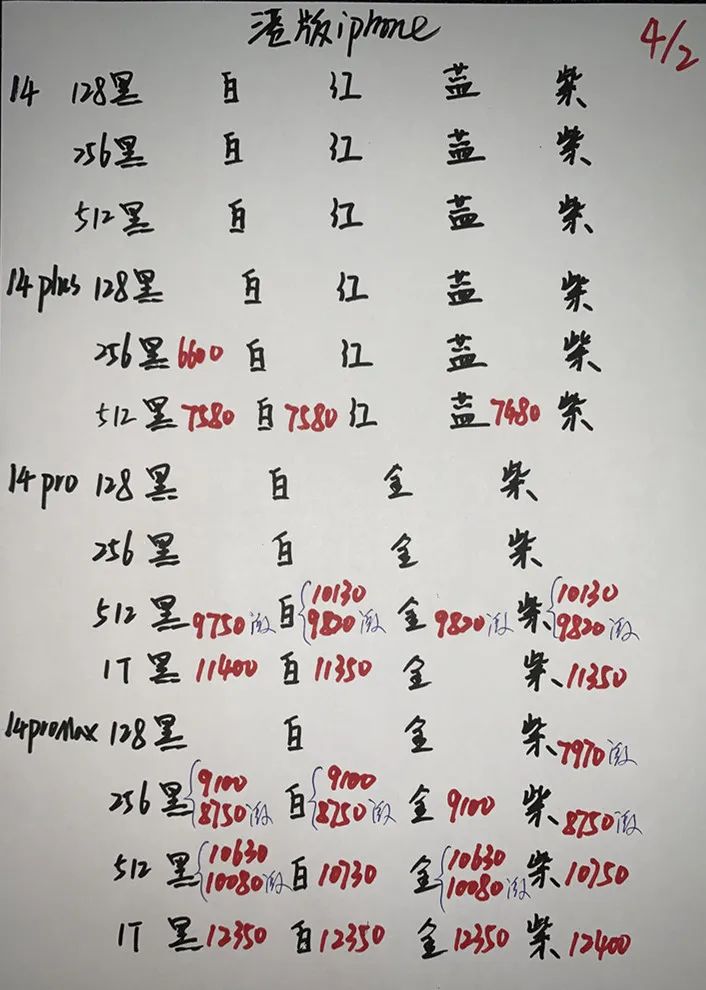 港版iphone 4/2
14 128黑 白 红 蓝 紫
256黑 白 红 蓝 紫
512黑 白 红 蓝 紫
14plus 128黑 白 红 蓝 紫
256黑6600 白 红 蓝 紫
512黑7580 白7580 红 蓝7480 紫
14pro 128黑 白 金 紫
256黑 白 金 紫
512黑9750激 白{10130 9820激 金9820激 紫{10130 9820激
1T黑11400 白11350 金 紫11350
14proMax 128黑 白 金 紫7970激
256黑{9100 8750激 白{9100 8750激 金9100 紫8750激
512黑{10630 10080激 白10730 金{10630 10080激 紫10750
1T黑12350 白12350 金12350 紫12400